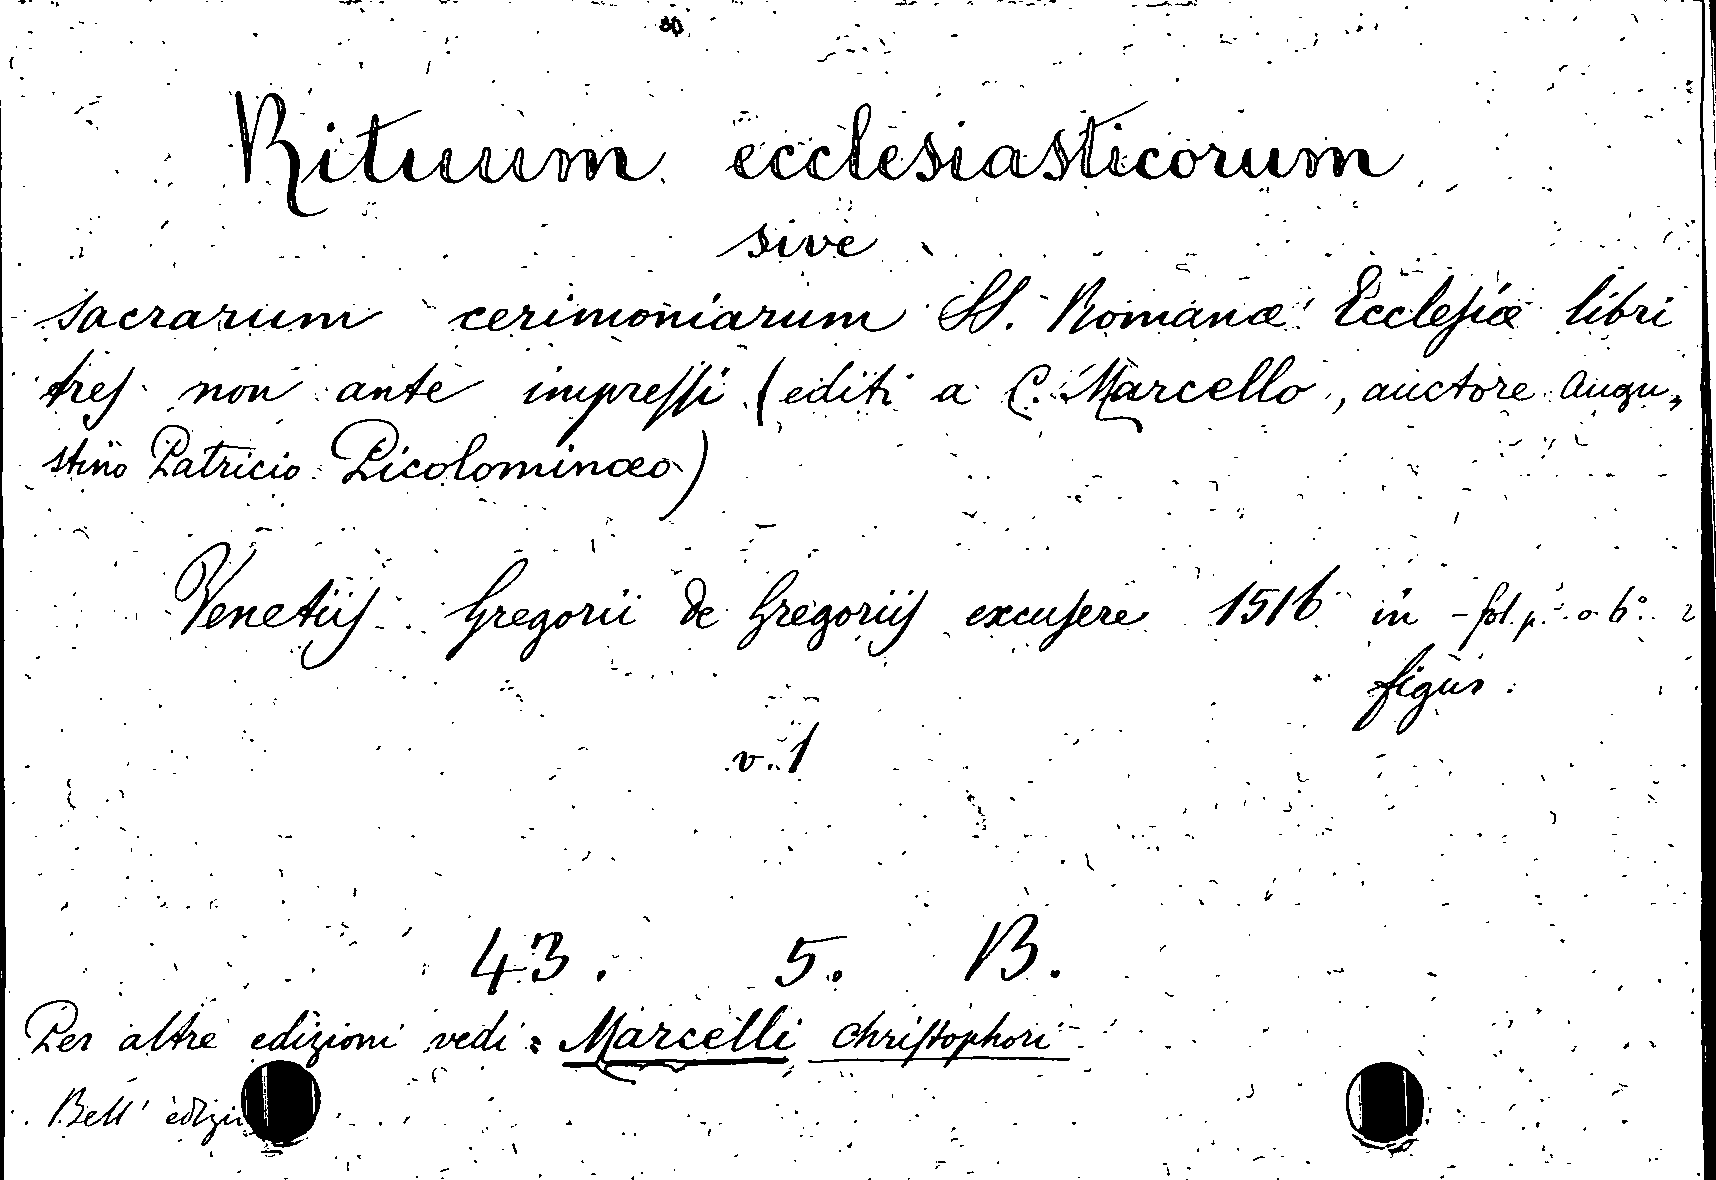 Rituum ecclesiasticorum
sive
sacrarum cerimoniarum SS. Romanæ Ecclesiæ libri
tres non ante impressi (editi a C. Marcello, auctore Augu„
stino Patricio Picolominæo)
Venetiis Gregorii de Gregoriis excusere 1516 in-fol. p.
figur.
v. 1
43. 5. B.
Per altre edizioni vedi: Marcelli Christophori
Bell'